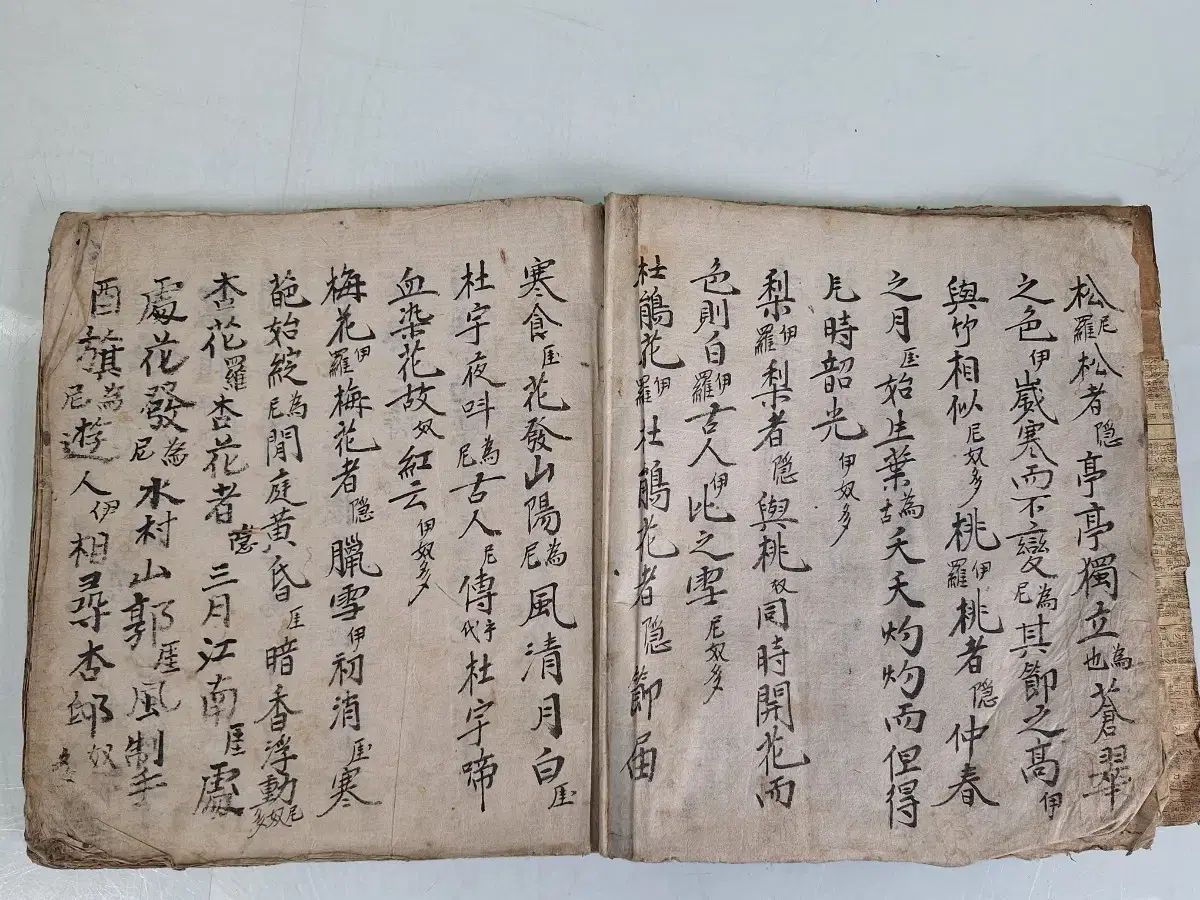 松尼羅松者隐亭亭獨立為也蒼翠
之色伊嵗寒而不變為尼其節之髙伊
與竹相似尼奴多桃伊羅桃者隐仲春
之月厓始生葉為古夭夭灼灼而但得
時韶光伊奴多
梨伊羅梨者隐與桃奴同時開花而
色則白伊羅古人伊比之雪尼奴多
杜鵑花伊羅杜鵑花者隐節届
寒食厓花發山陽為尼風清月白厓
杜宇夜呌為尼古人尼傳乎代杜宇啼
血染花故奴紅云伊奴多
梅花伊羅梅花者隐臘雪伊初消厓寒
葩始綻為尼閒庭黄昏厓暗香浮動尼奴多
杏花羅杏花者隐三月江南厓處
處花發為尼水村山郭厓風制手
酒旗為尼遊人伊相尋杏邨奴